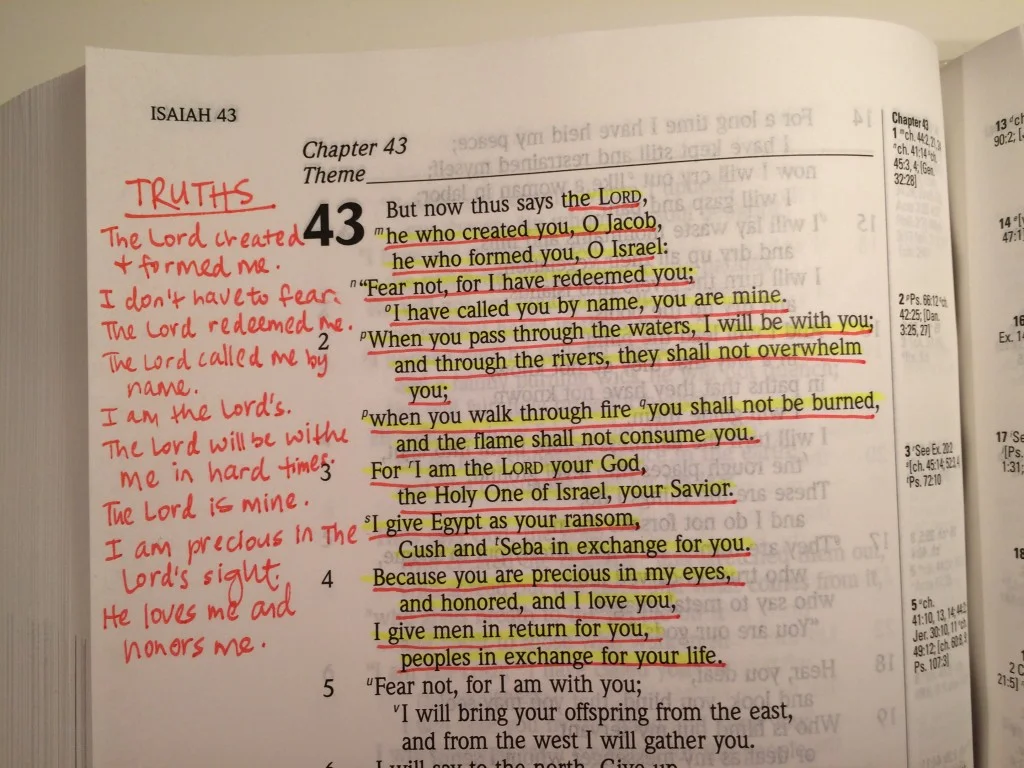 ISAIAH 43
Chapter 43
Theme
TRUTHS
The Lord created
+ formed me.
I don't have to fear.
The Lord redeemed me.
The Lord called me by
name.
I am the Lord's.
The Lord will be withe
me in hard times.
The Lord is mine.
I am precious in the
Lord's sight.
He loves me and
honors me.
43 But now thus says the LORD,
m he who created you, O Jacob,
he who formed you, O Israel:
n "Fear not, for I have redeemed you;
o I have called you by name, you are mine.
2 p When you pass through the waters, I will be with you;
and through the rivers, they shall not overwhelm
you;
p when you walk through fire q you shall not be burned,
and the flame shall not consume you.
3 For r I am the LORD your God,
the Holy One of Israel, your Savior.
s I give Egypt as your ransom,
Cush and t Seba in exchange for you.
4 Because you are precious in my eyes,
and honored, and I love you,
I give men in return for you,
peoples in exchange for your life.
5 u Fear not, for I am with you;
v I will bring your offspring from the east,
and from the west I will gather you.
6 I will say to the north, Give up,
Chapter 43
1 m ch. 44:2, 21, 24
n ch. 41:14 o ch.
45:3, 4; [Gen.
32:28]
2 p Ps. 66:12 q ch.
42:25; [Dan.
3:25, 27]
3 r See Ex. 20:2
s [ch. 45:14; 52:3, 4
t Ps. 72:10
5 u ch.
41:10, 13, 14; 44:2
Jer. 30:10, 11 v ch.
49:12; [ch. 60:8, 9
Ps. 107:3]
13
90:2;
14
47:1
16
Ex. 14
17 See
[Ps.
1:31;
18
19
2 C
21:5]